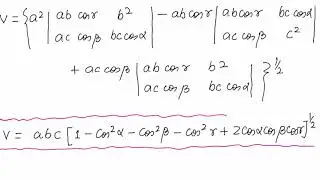 V = { a² | ab cosr b² | - ab cosr | ab cosr bc cosα |
ac cosβ bc cosα ac cosβ c²
+ ac cosβ | ab cosr b² | }^½
ac cosβ bc cosα
V = abc [1 - cos²α - cos²β - cos²r + 2cosα cosβ cosr]^½